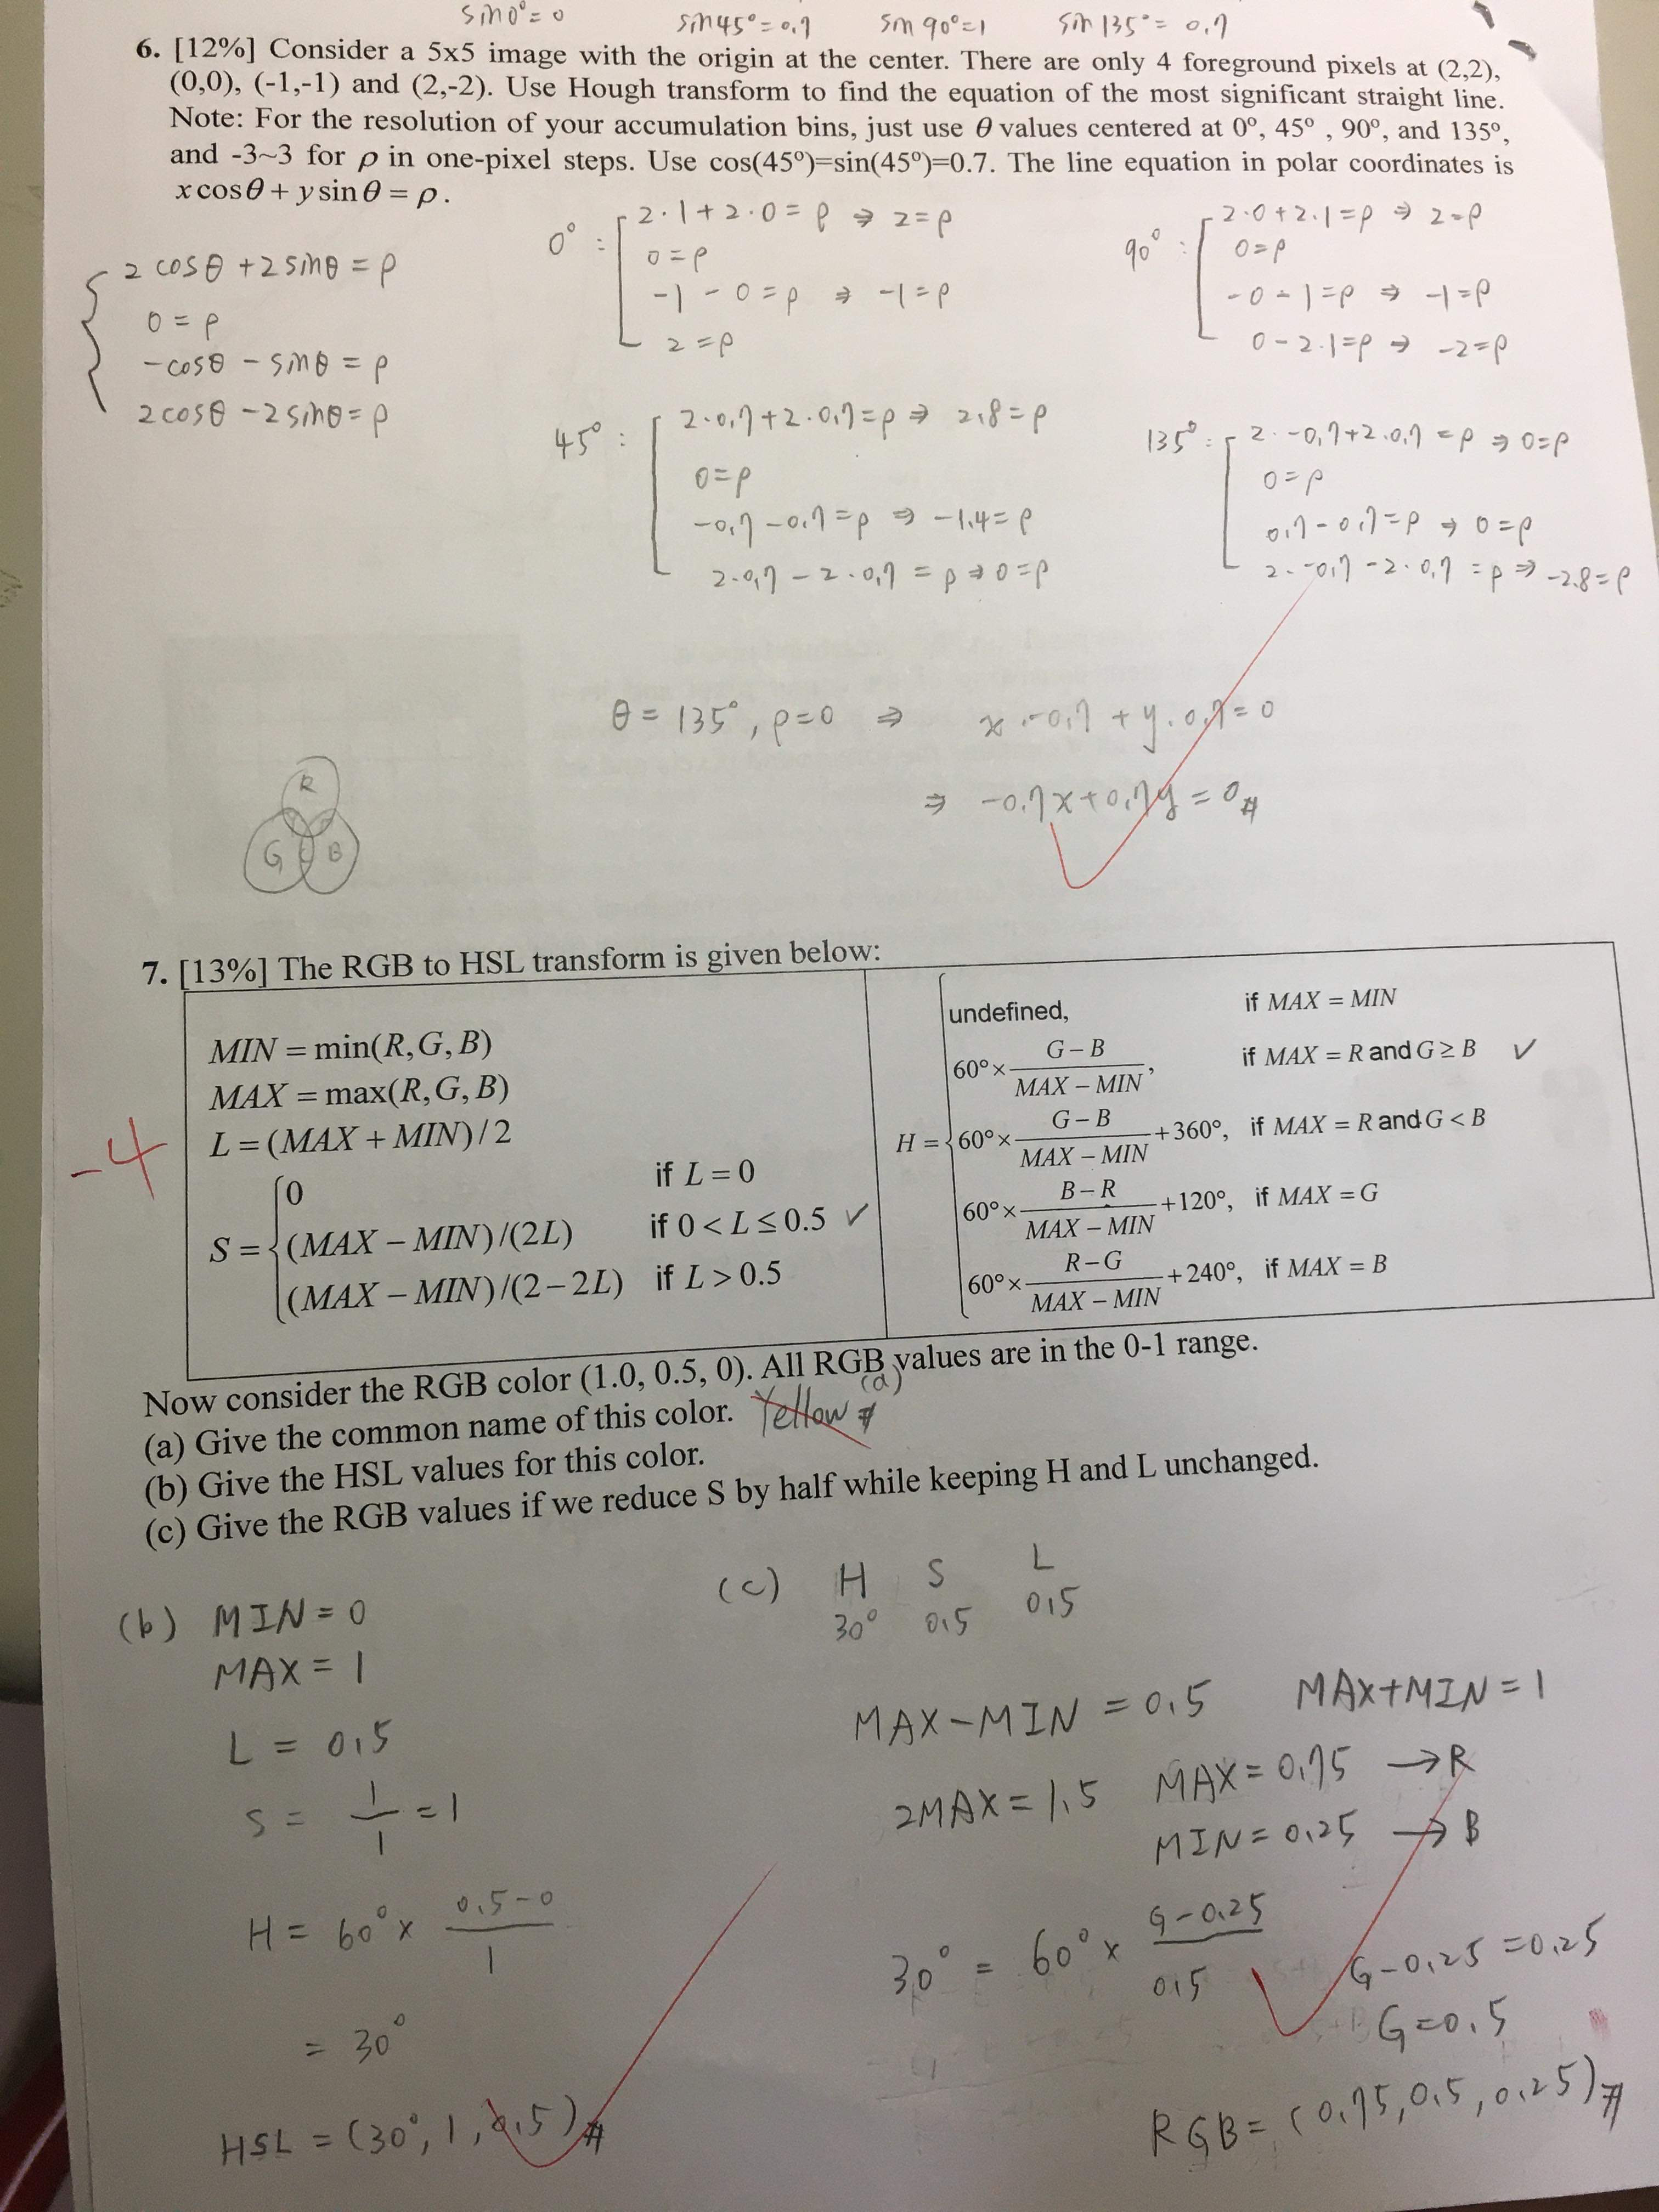 sin0°=0 sin45°=0.7 sin90°=1 sin135°=0.7
6. [12%] Consider a 5x5 image with the origin at the center. There are only 4 foreground pixels at (2,2),
(0,0), (-1,-1) and (2,-2). Use Hough transform to find the equation of the most significant straight line.
Note: For the resolution of your accumulation bins, just use θ values centered at 0°, 45° , 90°, and 135°,
and -3~3 for ρ in one-pixel steps. Use cos(45°)=sin(45°)=0.7. The line equation in polar coordinates is
x cosθ + y sinθ = ρ.
2cosθ + 2sinθ = ρ
0 = ρ
-cosθ - sinθ = ρ
2cosθ - 2sinθ = ρ
0° :
2·1+2·0=ρ ⇒ 2=ρ
0=ρ
-1-0=ρ ⇒ -1=ρ
2=ρ
90° :
2·0+2·1=ρ ⇒ 2=ρ
0=ρ
-0-1=ρ ⇒ -1=ρ
0-2·1=ρ ⇒ -2=ρ
45° :
2·0.7+2·0.7=ρ ⇒ 2.8=ρ
0=ρ
-0.7-0.7=ρ ⇒ -1.4=ρ
2·0.7-2·0.7=ρ ⇒ 0=ρ
135° :
2·-0.7+2·0.7=ρ ⇒ 0=ρ
0=ρ
0.7-0.7=ρ ⇒ 0=ρ
2·-0.7-2·0.7=ρ ⇒ -2.8=ρ
θ=135°, ρ=0 ⇒ x·-0.7+y·0.7=0
⇒ -0.7x+0.7y=0#
R
G B
7. [13%] The RGB to HSL transform is given below:
-4
MIN = min(R,G,B)
MAX = max(R,G,B)
L = (MAX + MIN)/2
S = {0 if L = 0
(MAX − MIN)/(2L) if 0 < L ≤ 0.5 ✓
(MAX − MIN)/(2−2L) if L > 0.5
H = {undefined, if MAX = MIN
60°× (G−B)/(MAX−MIN), if MAX = R and G ≥ B ✓
60°× (G−B)/(MAX−MIN) +360°, if MAX = R and G < B
60°× (B−R)/(MAX−MIN) +120°, if MAX = G
60°× (R−G)/(MAX−MIN) +240°, if MAX = B
Now consider the RGB color (1.0, 0.5, 0). All RGB values are in the 0-1 range.
(a) Give the common name of this color. (a) Yellow #
(b) Give the HSL values for this color.
(c) Give the RGB values if we reduce S by half while keeping H and L unchanged.
(b) MIN = 0
MAX = 1
L = 0.5
S = 1/1 = 1
H = 60° × (0.5-0)/1
= 30°
HSL = (30°, 1, 0.5)#
(c) H S L
30° 0.5 0.5
MAX-MIN = 0.5 MAX+MIN = 1
2MAX = 1.5 MAX = 0.75 → R
MIN = 0.25 → B
30° = 60° × (G-0.25)/0.5 G-0.25=0.25
G=0.5
RGB = (0.75, 0.5, 0.25)#